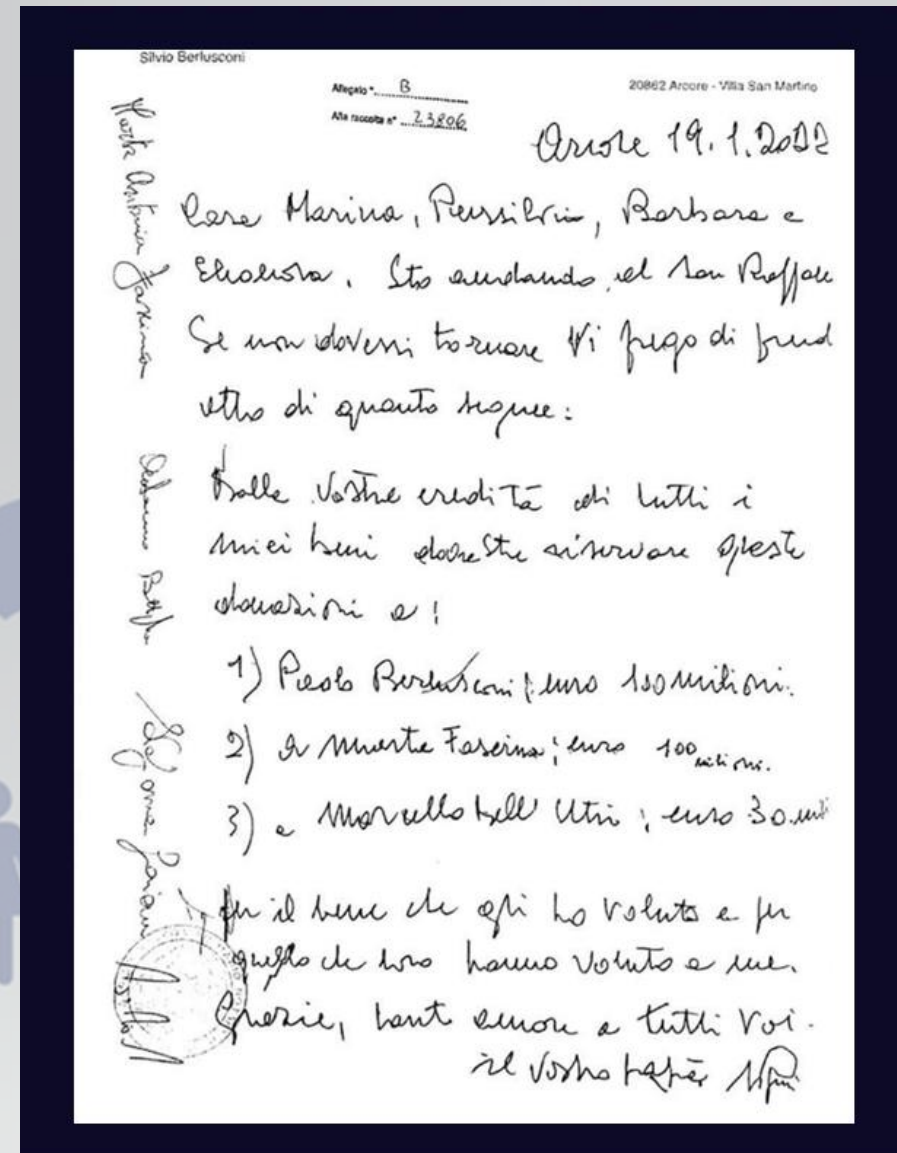 Silvio Berlusconi
20862 Arcore - Villa San Martino
Allegato "..... B
Alla raccolta n° .....23806
Arcore 19.1.2022
Cara Marina, Piersilvio, Barbara e
Eleonora, Sto andando al San Raffaele
Se non dovessi tornare Vi prego di prend
atto di quanto segue:
Dalle Vostre eredità di tutti i
miei beni dovreste riservare queste
donazioni a:
1) Paolo Berlusconi; euro 100 milioni.
2) a Marta Fascina; euro 100 milioni.
3) a Marcello Dell'Utri; euro 30 mili
per il bene che gli ho voluto e per
quello che loro hanno voluto a me.
Grazie, tanto amore a tutti Voi.
il vostro papà
Marta Antonia Fascina